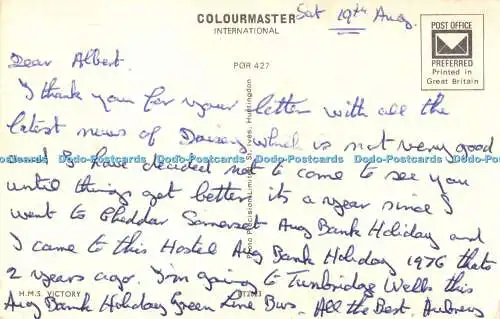 COLOURMASTER
INTERNATIONAL
Sat 19th Aug.
POST OFFICE
PREFERRED
Printed in
Great Britain
POR 427
Dear Albert.
I thank you for your letter with all the
latest news of Daisey which is not very good
and I have decided not to come to see you
until things get better its a year since I
went to Cheddar Somerset Aug Bank Holiday and
I came to this Hostel Aug Bank Holiday 1976 thats
2 years ago. I'm going to Tunbridge Wells this
Aug Bank Holiday Green Line Bus. All the Best. Aubrey
H.M.S. VICTORY
Photo Precision Limited, St. Ives, Huntingdon
Dodo-Postcards Dodo-Postcards Dodo-Postcards Dodo-Postcards Dodo-Postcards